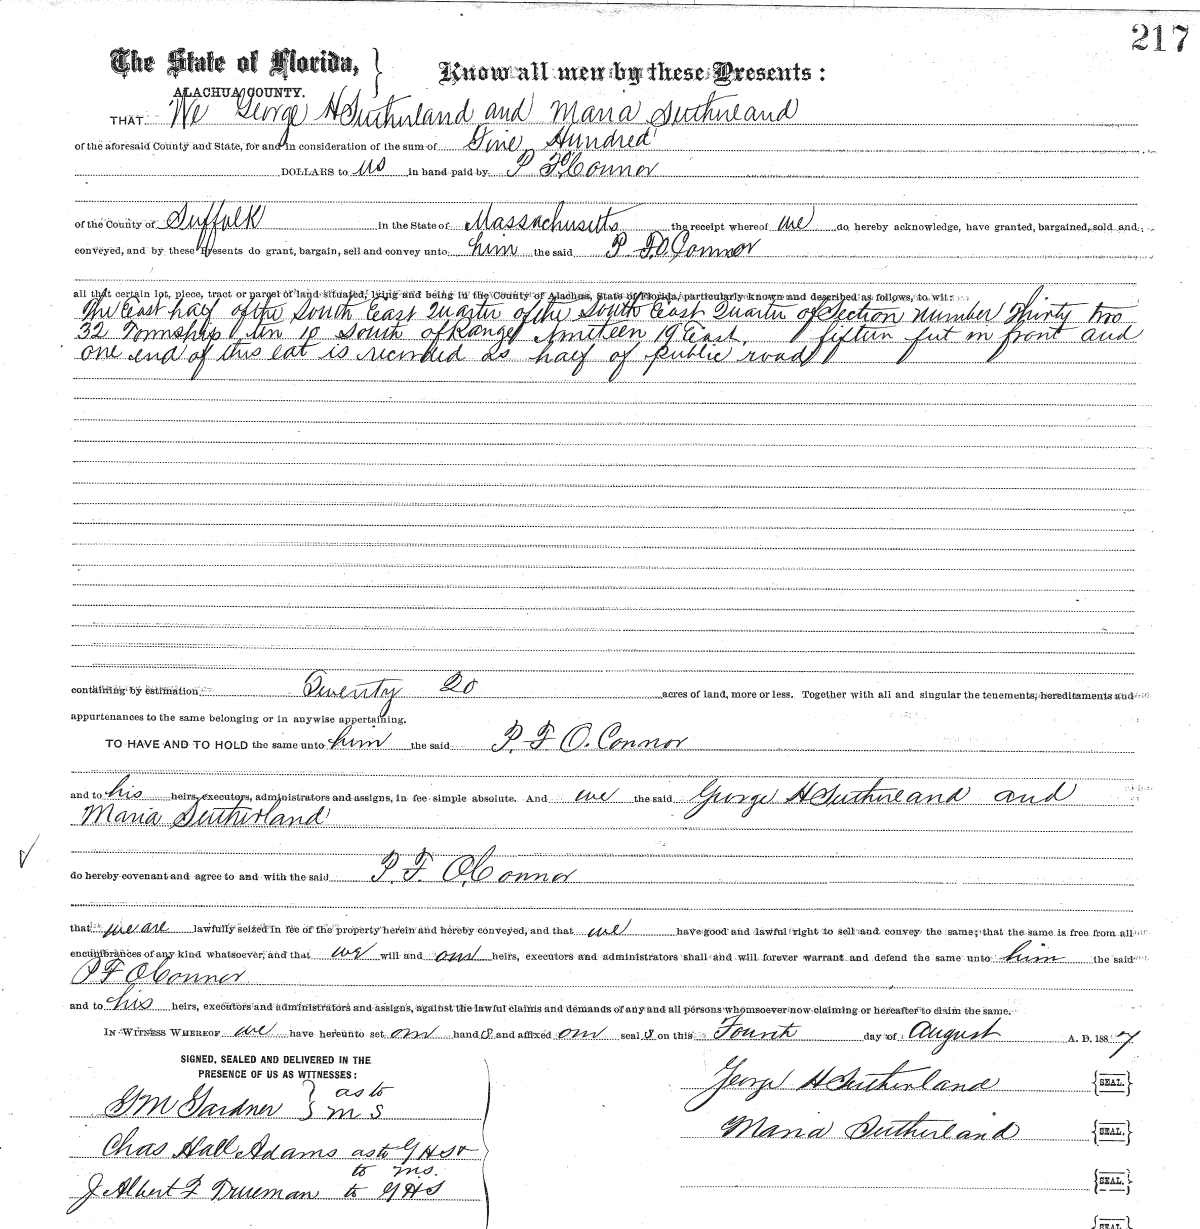 217
The State of Florida, } Know all men by these Presents:
ALACHUA COUNTY.
THAT We George H Sutherland and Maria Sutherland
of the aforesaid County and State, for and in consideration of the sum of Five Hundred
DOLLARS to us in hand paid by P F O'Connor
of the County of Suffolk in the State of Massachusetts the receipt whereof we do hereby acknowledge, have granted, bargained, sold and
conveyed, and by these Presents do grant, bargain, sell and convey unto him the said P F O Connor
all that certain lot, piece, tract or parcel of land situated, lying and being in the County of Alachua, State of Florida, particularly known and described as follows, to wit:
The East half of the South East Quarter of the South East Quarter of Section number Thirty two
32 Township ten 10 South of Range Nineteen 19 East. fifteen feet in front and
one end of this is recorded as half of public road
containing by estimation Twenty 20 acres of land, more or less. Together with all and singular the tenements, hereditaments and
appurtenances to the same belonging or in anywise appertaining.
TO HAVE AND TO HOLD the same unto him the said P. F O. Connor
and to his heirs, executors, administrators and assigns, in fee simple absolute. And we the said George H Sutherland and
Maria Sutherland
do hereby covenant and agree to and with the said P. F. O'Connor
that we are lawfully seized in fee of the property herein and hereby conveyed, and that we have good and lawful right to sell and convey the same; that the same is free from all
encumbrances of any kind whatsoever, and that we will and our heirs, executors and administrators shall and will forever warrant and defend the same unto him the said
P F O Connor
and to his heirs, executors and administrators and assigns, against the lawful claims and demands of any and all persons whomsoever now claiming or hereafter to claim the same.
IN WITNESS WHEREOF we have hereunto set our hand s and affixed our seal s on this Fourth day of August A. D. 188 7
SIGNED, SEALED AND DELIVERED IN THE
PRESENCE OF US AS WITNESSES:
George H Sutherland {SEAL.}
G M Gardner } as to M S
Maria Sutherland {SEAL.}
Chas Hall Adams as to G H S & to M S.
{SEAL.}
J Albert F Trueman to G H S
{SEAL.}